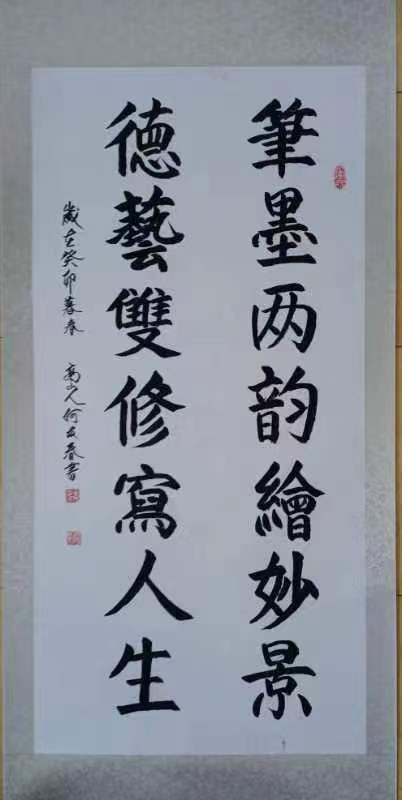 筆墨两韵繪妙景
德藝雙修寫人生
歲在癸卯暮春 高山人何友春書